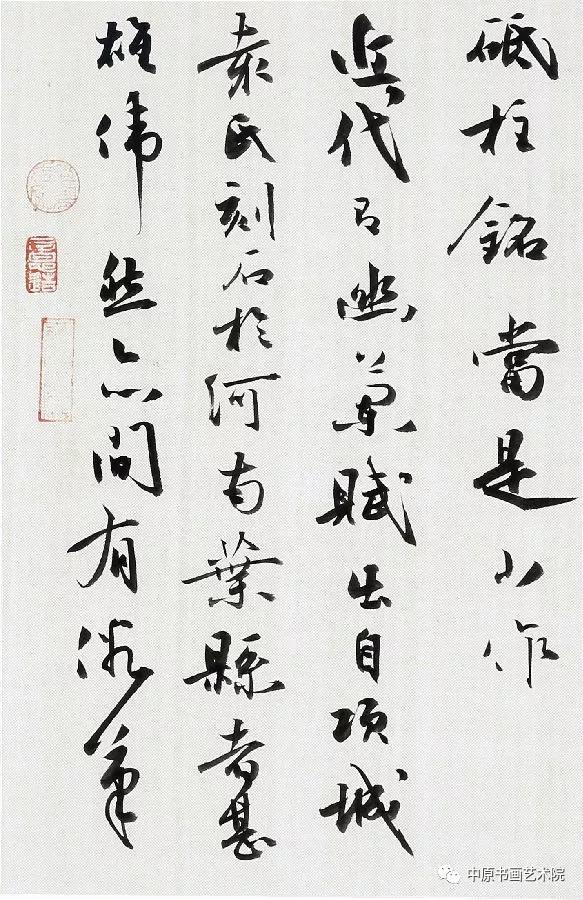 砥柱銘當是少作
近代有幽蘭賦出自項城
袁氏刻石於河南葉縣者甚
雄伟然亦間有筆
中原书画艺术院